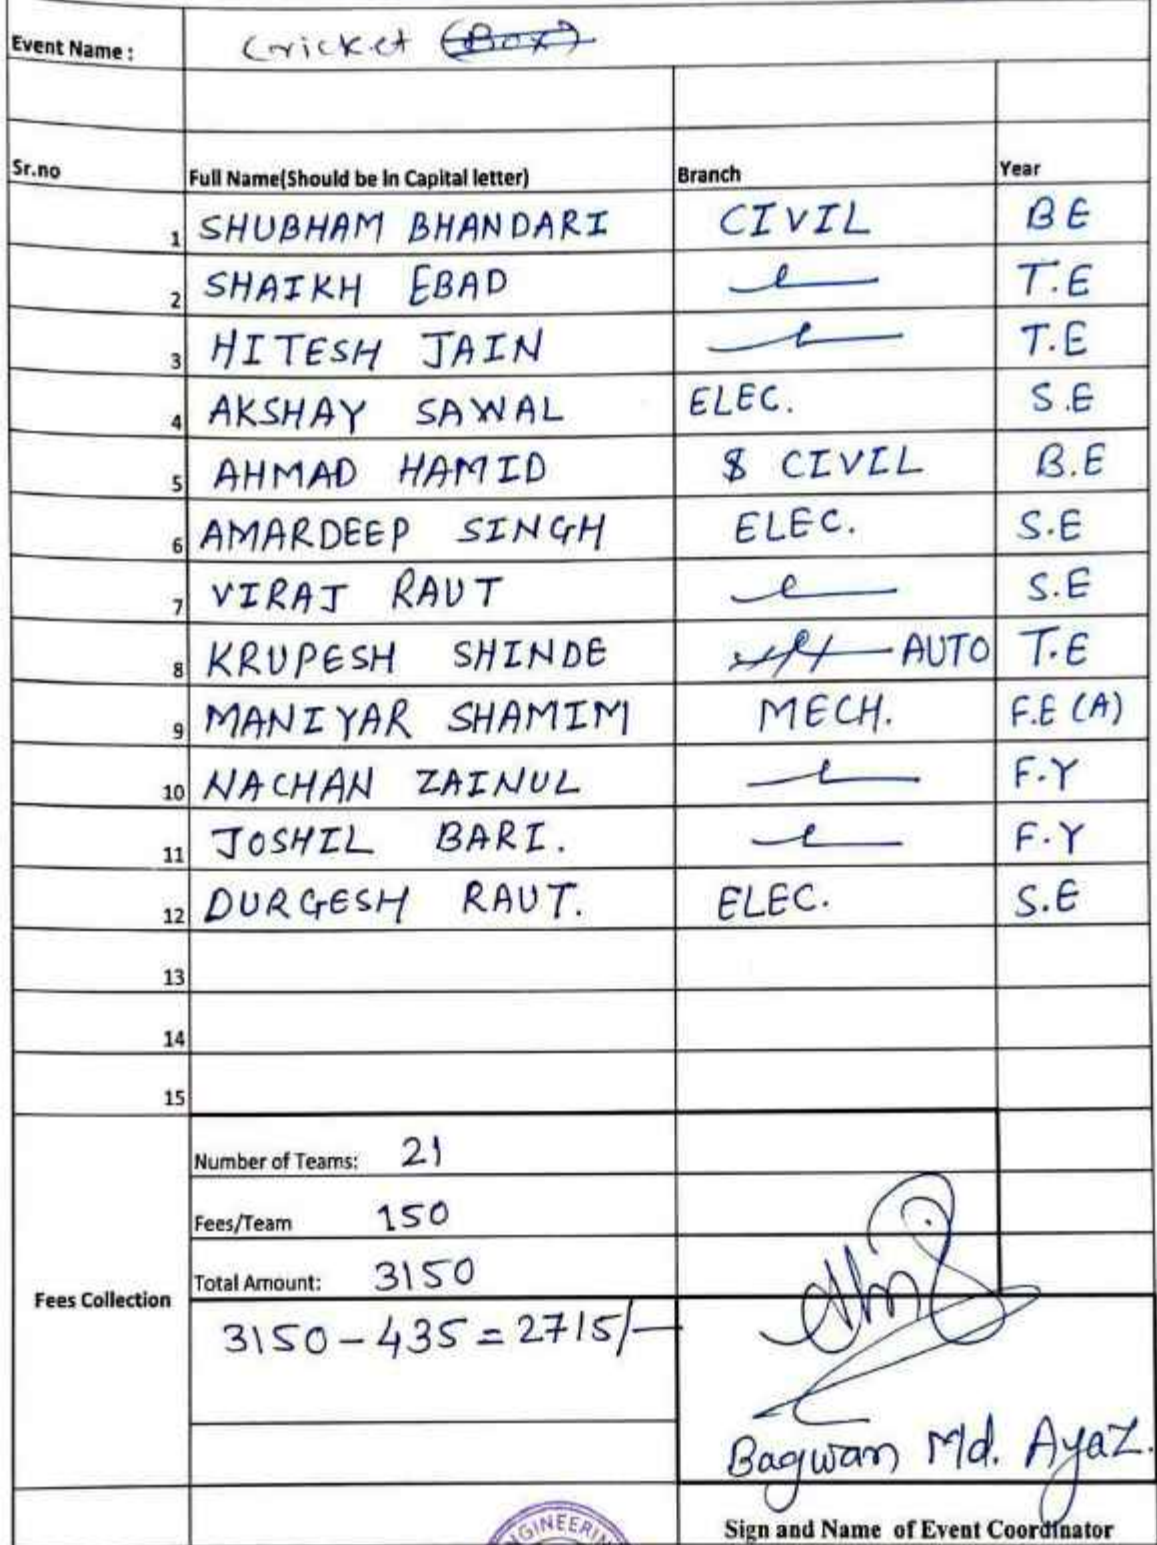 Event Name : Cricket (Box)
Sr.no Full Name(Should be in Capital letter) Branch Year
1 SHUBHAM BHANDARI CIVIL BE
2 SHAIKH EBAD T.E
3 HITESH JAIN T.E
4 AKSHAY SAWAL ELEC. S.E
5 AHMAD HAMID $ CIVIL B.E
6 AMARDEEP SINGH ELEC. S.E
7 VIRAJ RAUT S.E
8 KRUPESH SHINDE AUTO T.E
9 MANIYAR SHAMIM MECH. F.E (A)
10 NACHAN ZAINUL F.Y
11 JOSHIL BARI. F.Y
12 DURGESH RAUT. ELEC. S.E
13
14
15
Number of Teams: 21
Fees/Team 150
Total Amount: 3150
Fees Collection
3150 - 435 = 2715/-
Bagwan Md. Ayaz.
Sign and Name of Event Coordinator